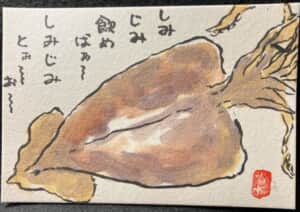 しみ
じみ
飲め
ばぁ〜
しみじみ
とぉ〜
お〜